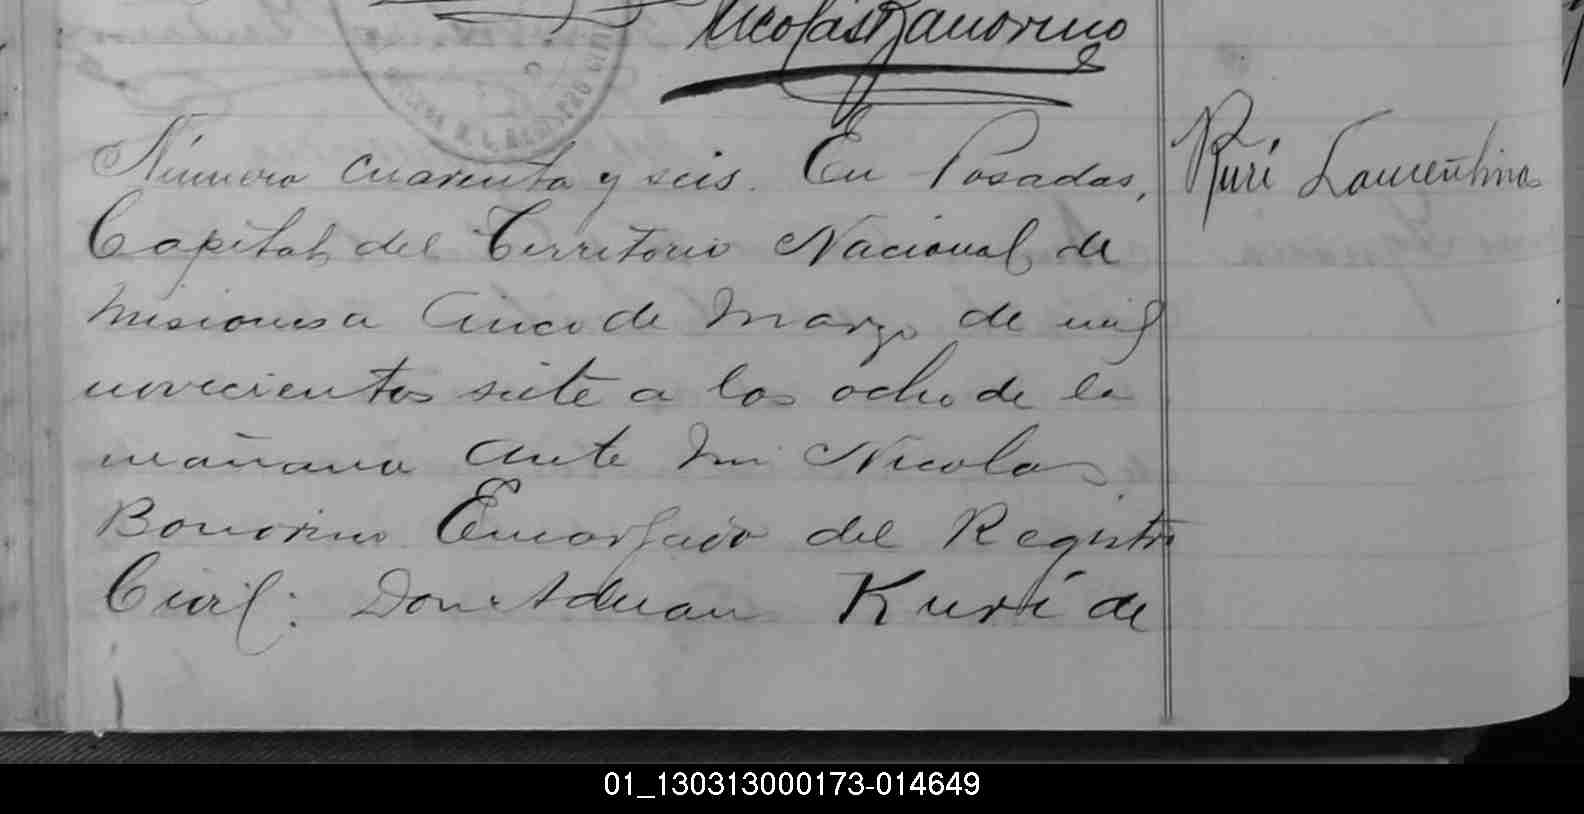 Nicolás Bonorino
Número cuarenta y seis. En Posadas,
Kuri Laurentina
Capital del Territorio Nacional de
Misiones a Cinco de Marzo de mil
novecientos siete a las ocho de la
mañana ante mi Nicolas
Bonorino Encargado del Registro
Civil: Don Aduan Kurí de
01_130313000173-014649